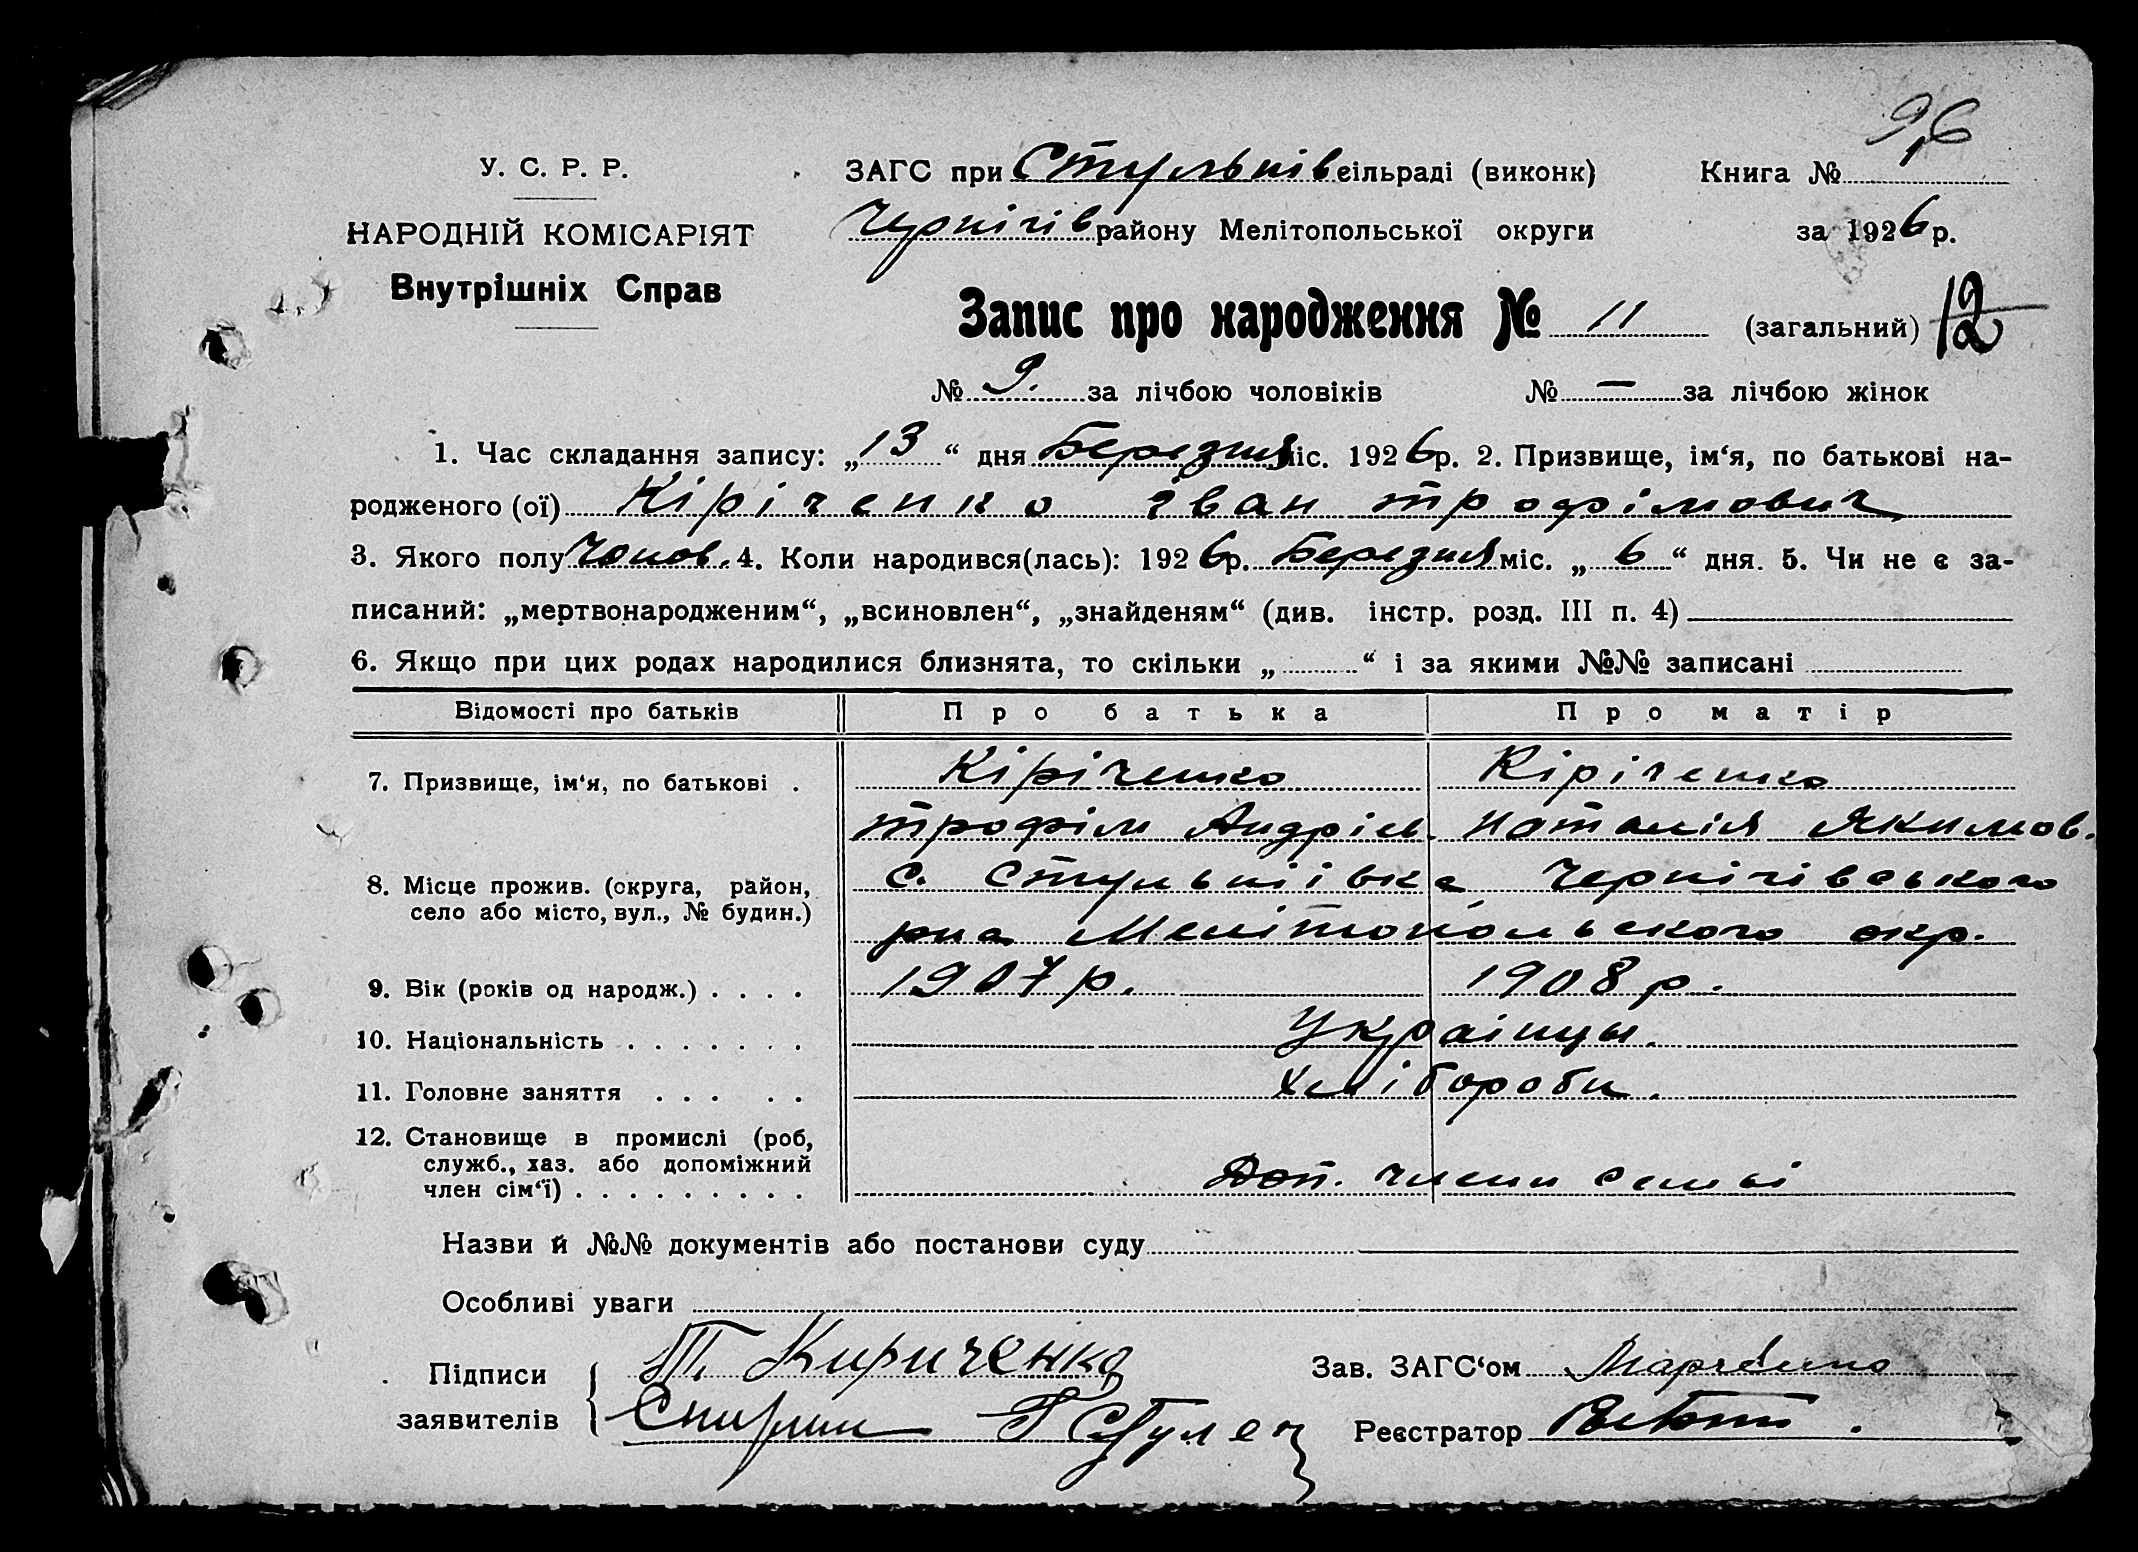 96
У. С. Р. Р.
ЗАГС при Стульнів сільраді (виконк)
Книга №
НАРОДНІЙ КОМІСАРІЯТ
Чернігів району Мелітопольської округи
за 1926 р.
Внутрішніх Справ
Запис про народження № 11 (загальний) 12
№ 9. за лічбою чоловіків № — за лічбою жінок
1. Час складання запису: „13“ дня Березня міс. 1926 р. 2. Призвище, ім‘я, по батькові на-
родженого (ої) Кіріченко Іван трофімович
3. Якого полу Чолов. 4. Коли народився(лась): 1926 р. Березня міс. „6“ дня. 5. Чи не є за-
писаний: „мертвонародженим“, „всиновлен“, „знайденям“ (див. інстр. розд. III п. 4)
6. Якщо при цих родах народилися близнята, то скільки „ “ і за якими №№ записані
Відомості про батьків Про батька Про матір
7. Призвище, ім‘я, по батькові . Кіріченко Кіріченко
трофім Андрієв. Наталія Якимов.
8. Місце прожив. (округа, район, с. Стульніівка Чернігівського
село або місто, вул., № будин.)
рна Мелітопольского окр.
9. Вік (років од народж.) . . . . 1907 р. 1908 р.
10. Національність . . . . . . . Українцы.
11. Головне заняття . . . . . Хлібороби.
12. Становище в промислі (роб,
служб., хаз. або допоміжний
член сім‘ї) . . . . . . . . . Доп. члени семьі
Назви й №№ документів або постанови суду
Особливі уваги
Підписи
заявителів
Т. Кириченко
Зав. ЗАГС‘ом
Реєстратор